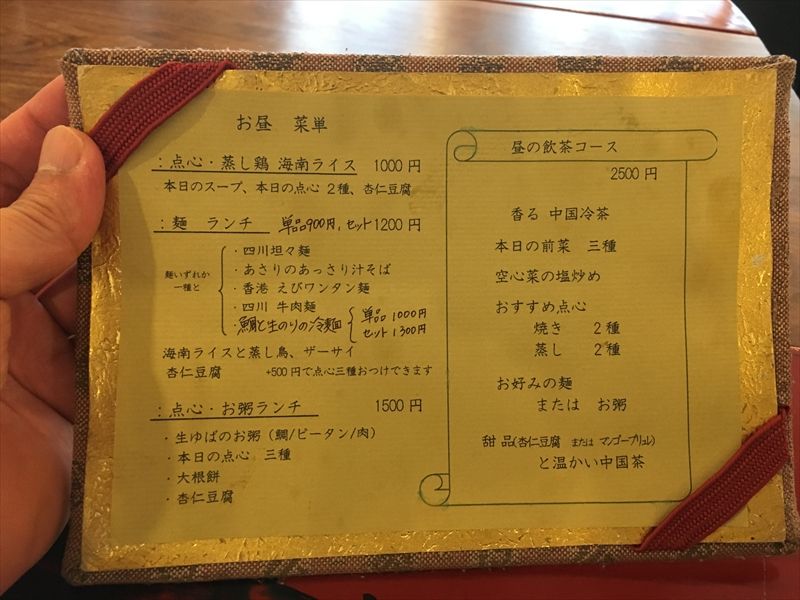 お昼 菜単
：点心・蒸し鶏 海南ライス 1000円
本日のスープ、本日の点心 2種、杏仁豆腐
：麺 ランチ 単品900円、セット1200円
麺いずれか
一種と
・四川坦々麺
・あさりのあっさり汁そば
・香港 えびワンタン麺
・四川 牛肉麺
・鯛と生のりの冷麺 単品 1000円
セット 1300円
海南ライスと蒸し鳥、ザーサイ
杏仁豆腐 +500円で点心三種おつけできます
：点心・お粥ランチ 1500円
・生ゆばのお粥（鯛/ピータン/肉）
・本日の点心 三種
・大根餅
・杏仁豆腐
昼の飲茶コース
2500円
香る 中国冷茶
本日の前菜 三種
空心菜の塩炒め
おすすめ点心
焼き 2種
蒸し 2種
お好みの麺
または お粥
甜品(杏仁豆腐 または マンゴーブリュレ)
と温かい中国茶